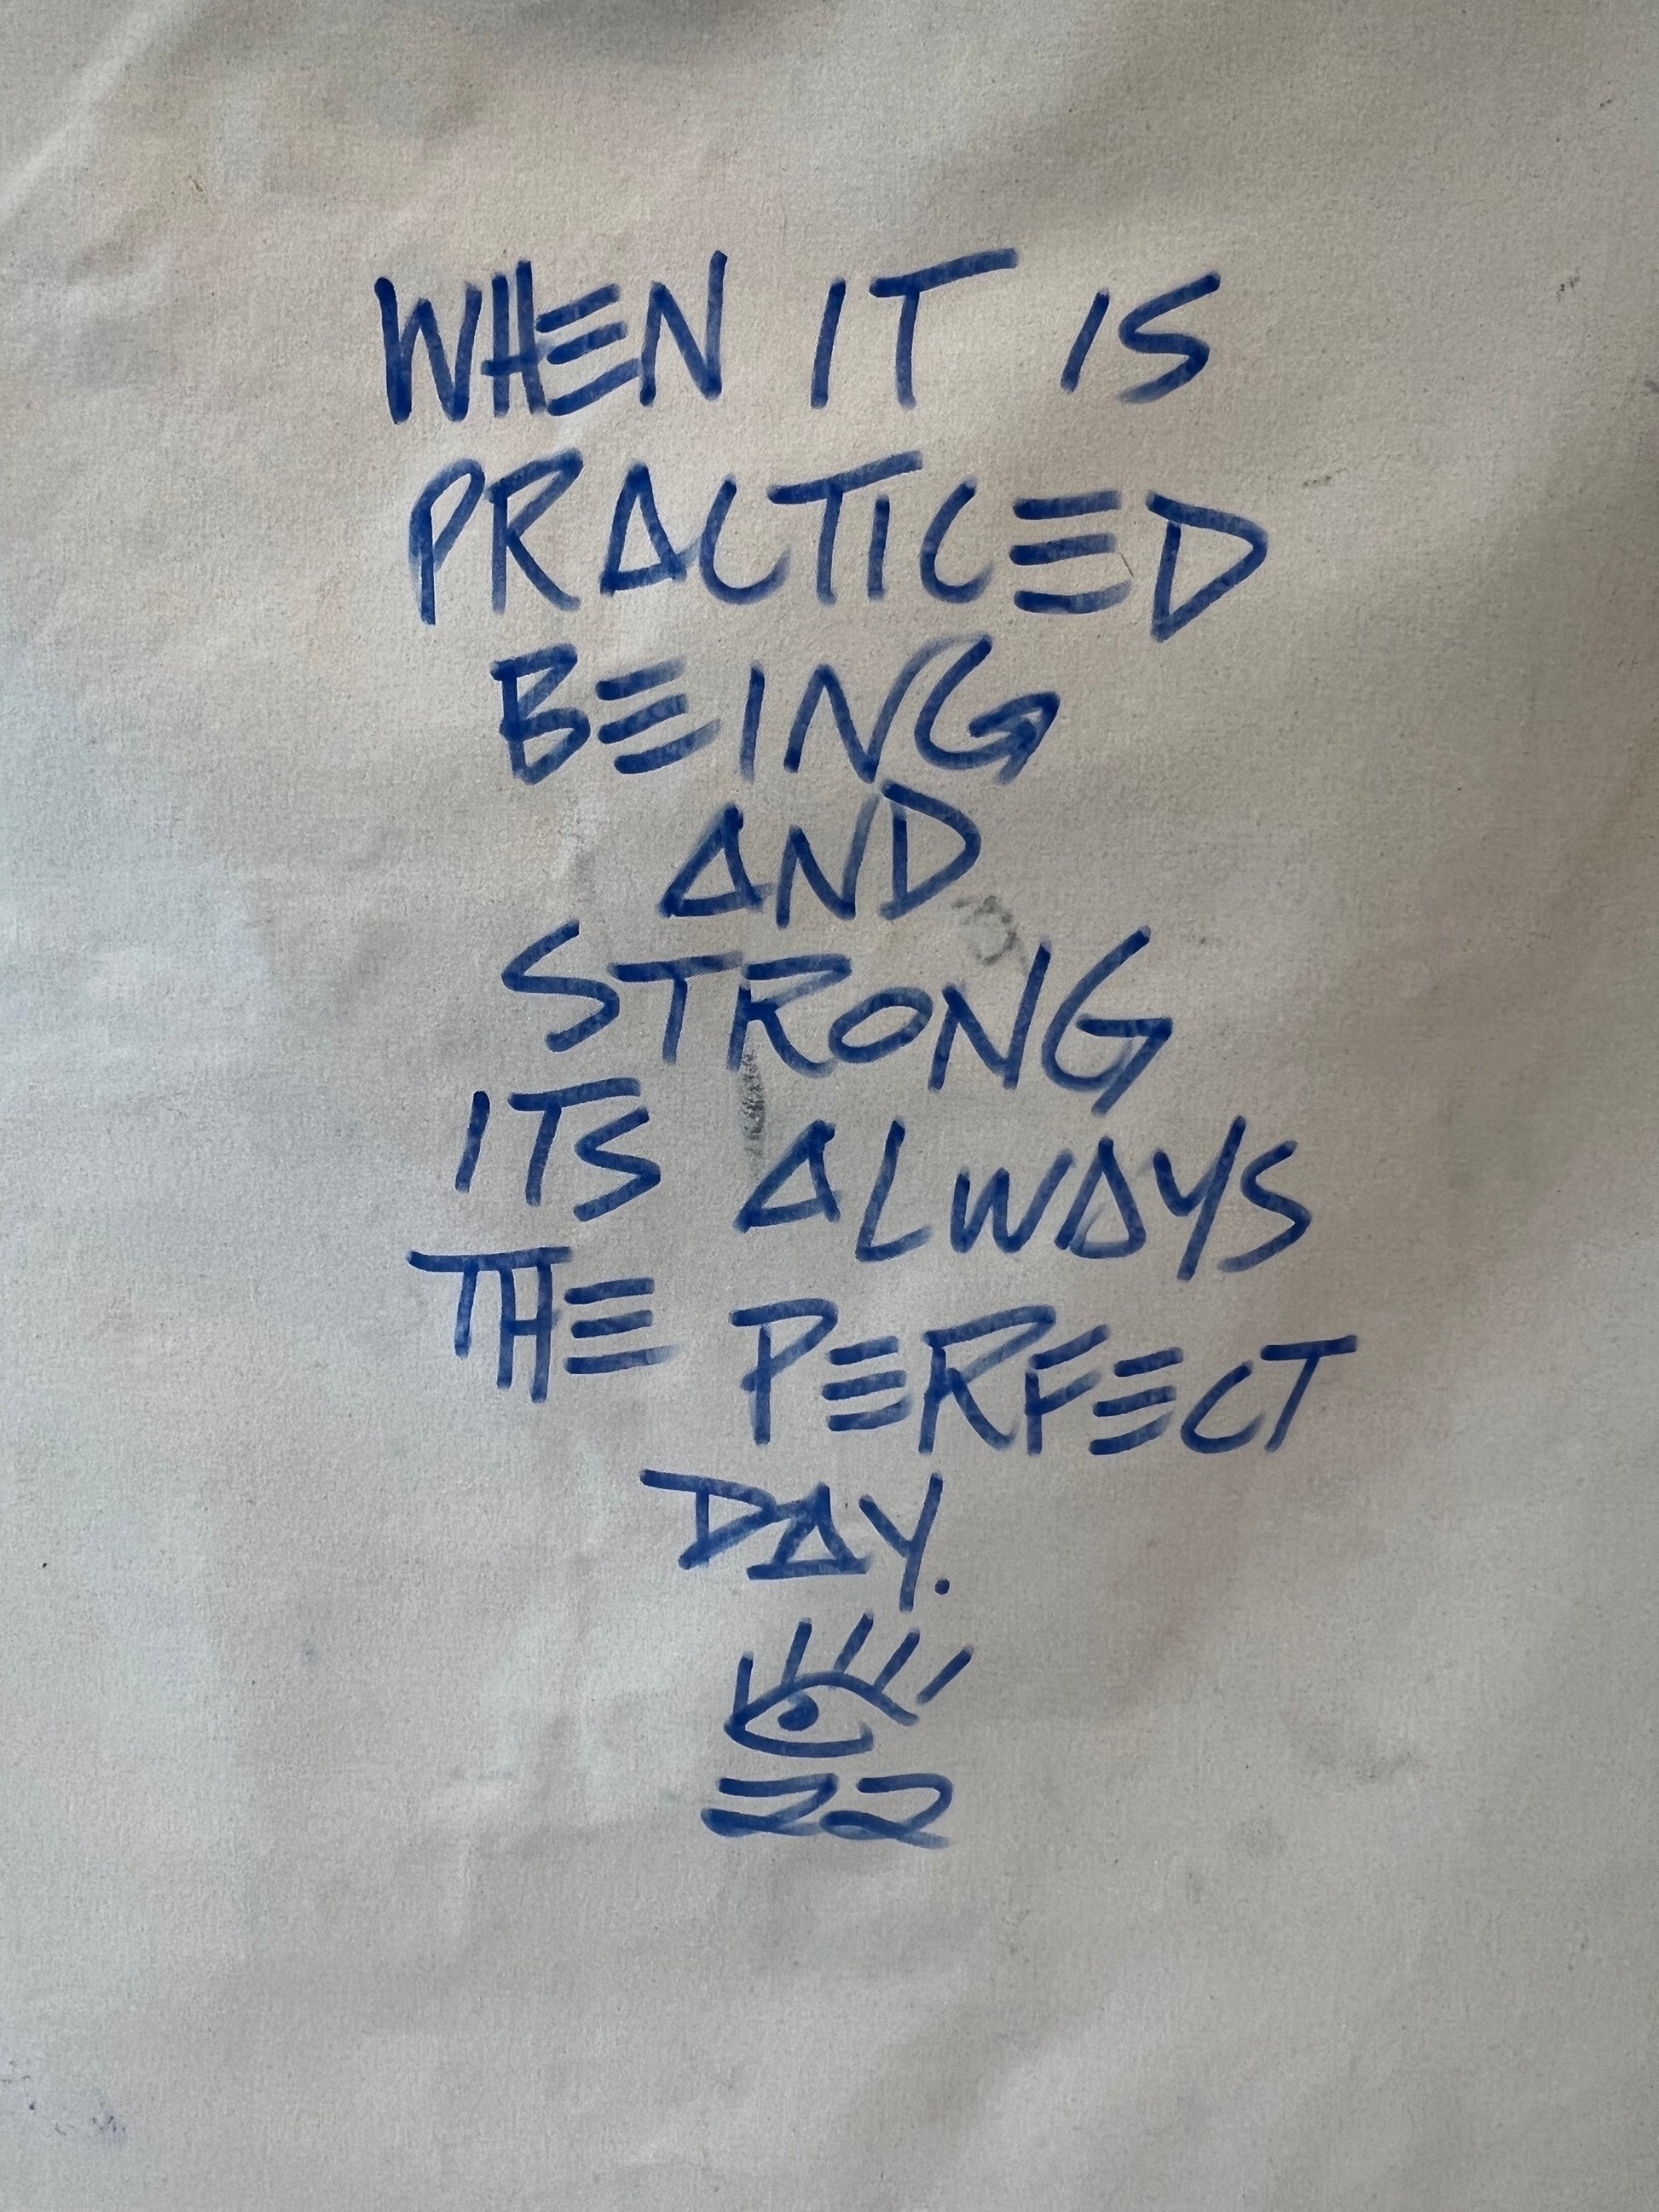 WHEN IT IS
PRACTICED
BEING
AND
STRONG
ITS ALWAYS
THE PERFECT
DAY.
22